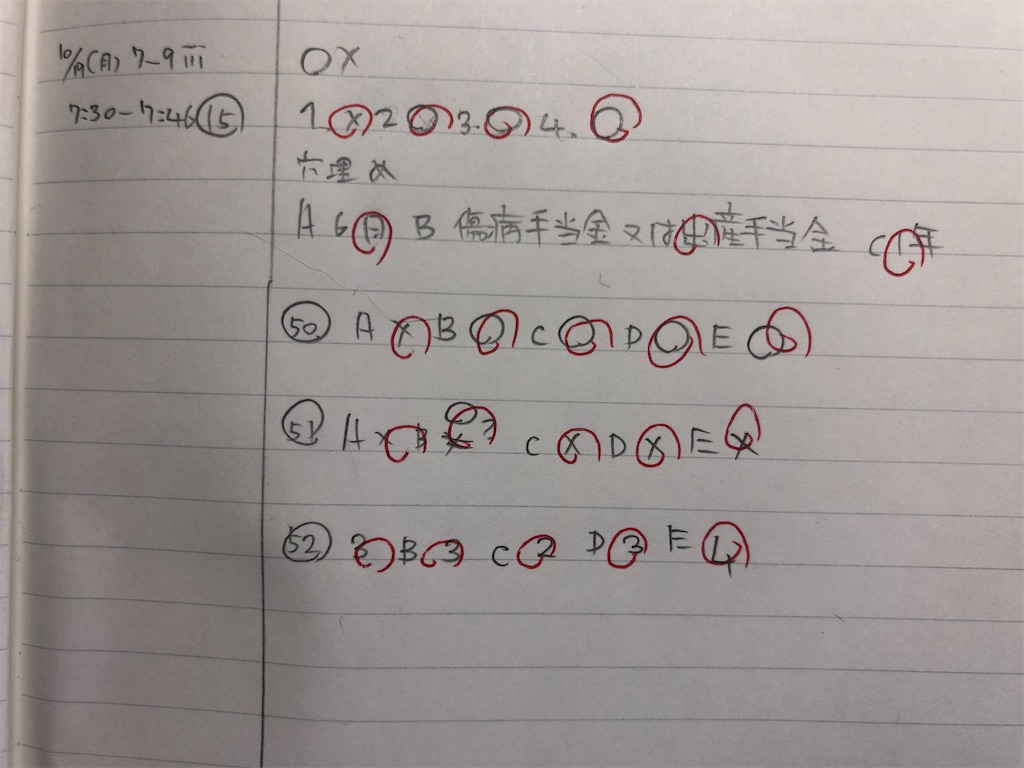 10/19(月) 7-9 iii
○×
7:30-7:46 ⑮
1. × 2 ○ 3. ○ 4. ○
穴埋め
A 6月 B 傷病手当金又は出産手当金 C 1年
㊿ A × B ○ C ○ D ○ E ○
51 A × B C × D × E ×
52 B 3 C 2 D 3 E 4